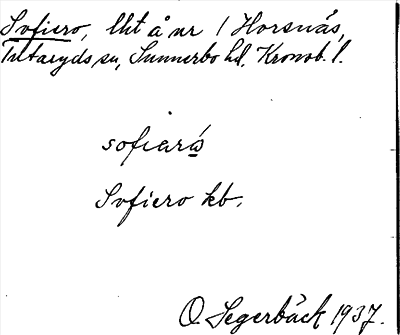 Sofiero, lht å nr 1 Horsnäs,
Tutaryds sn, Sunnerbo hd, Kronob. l.
sofiarọ́
Sofiero kb.
O. Segerbäck 1937.